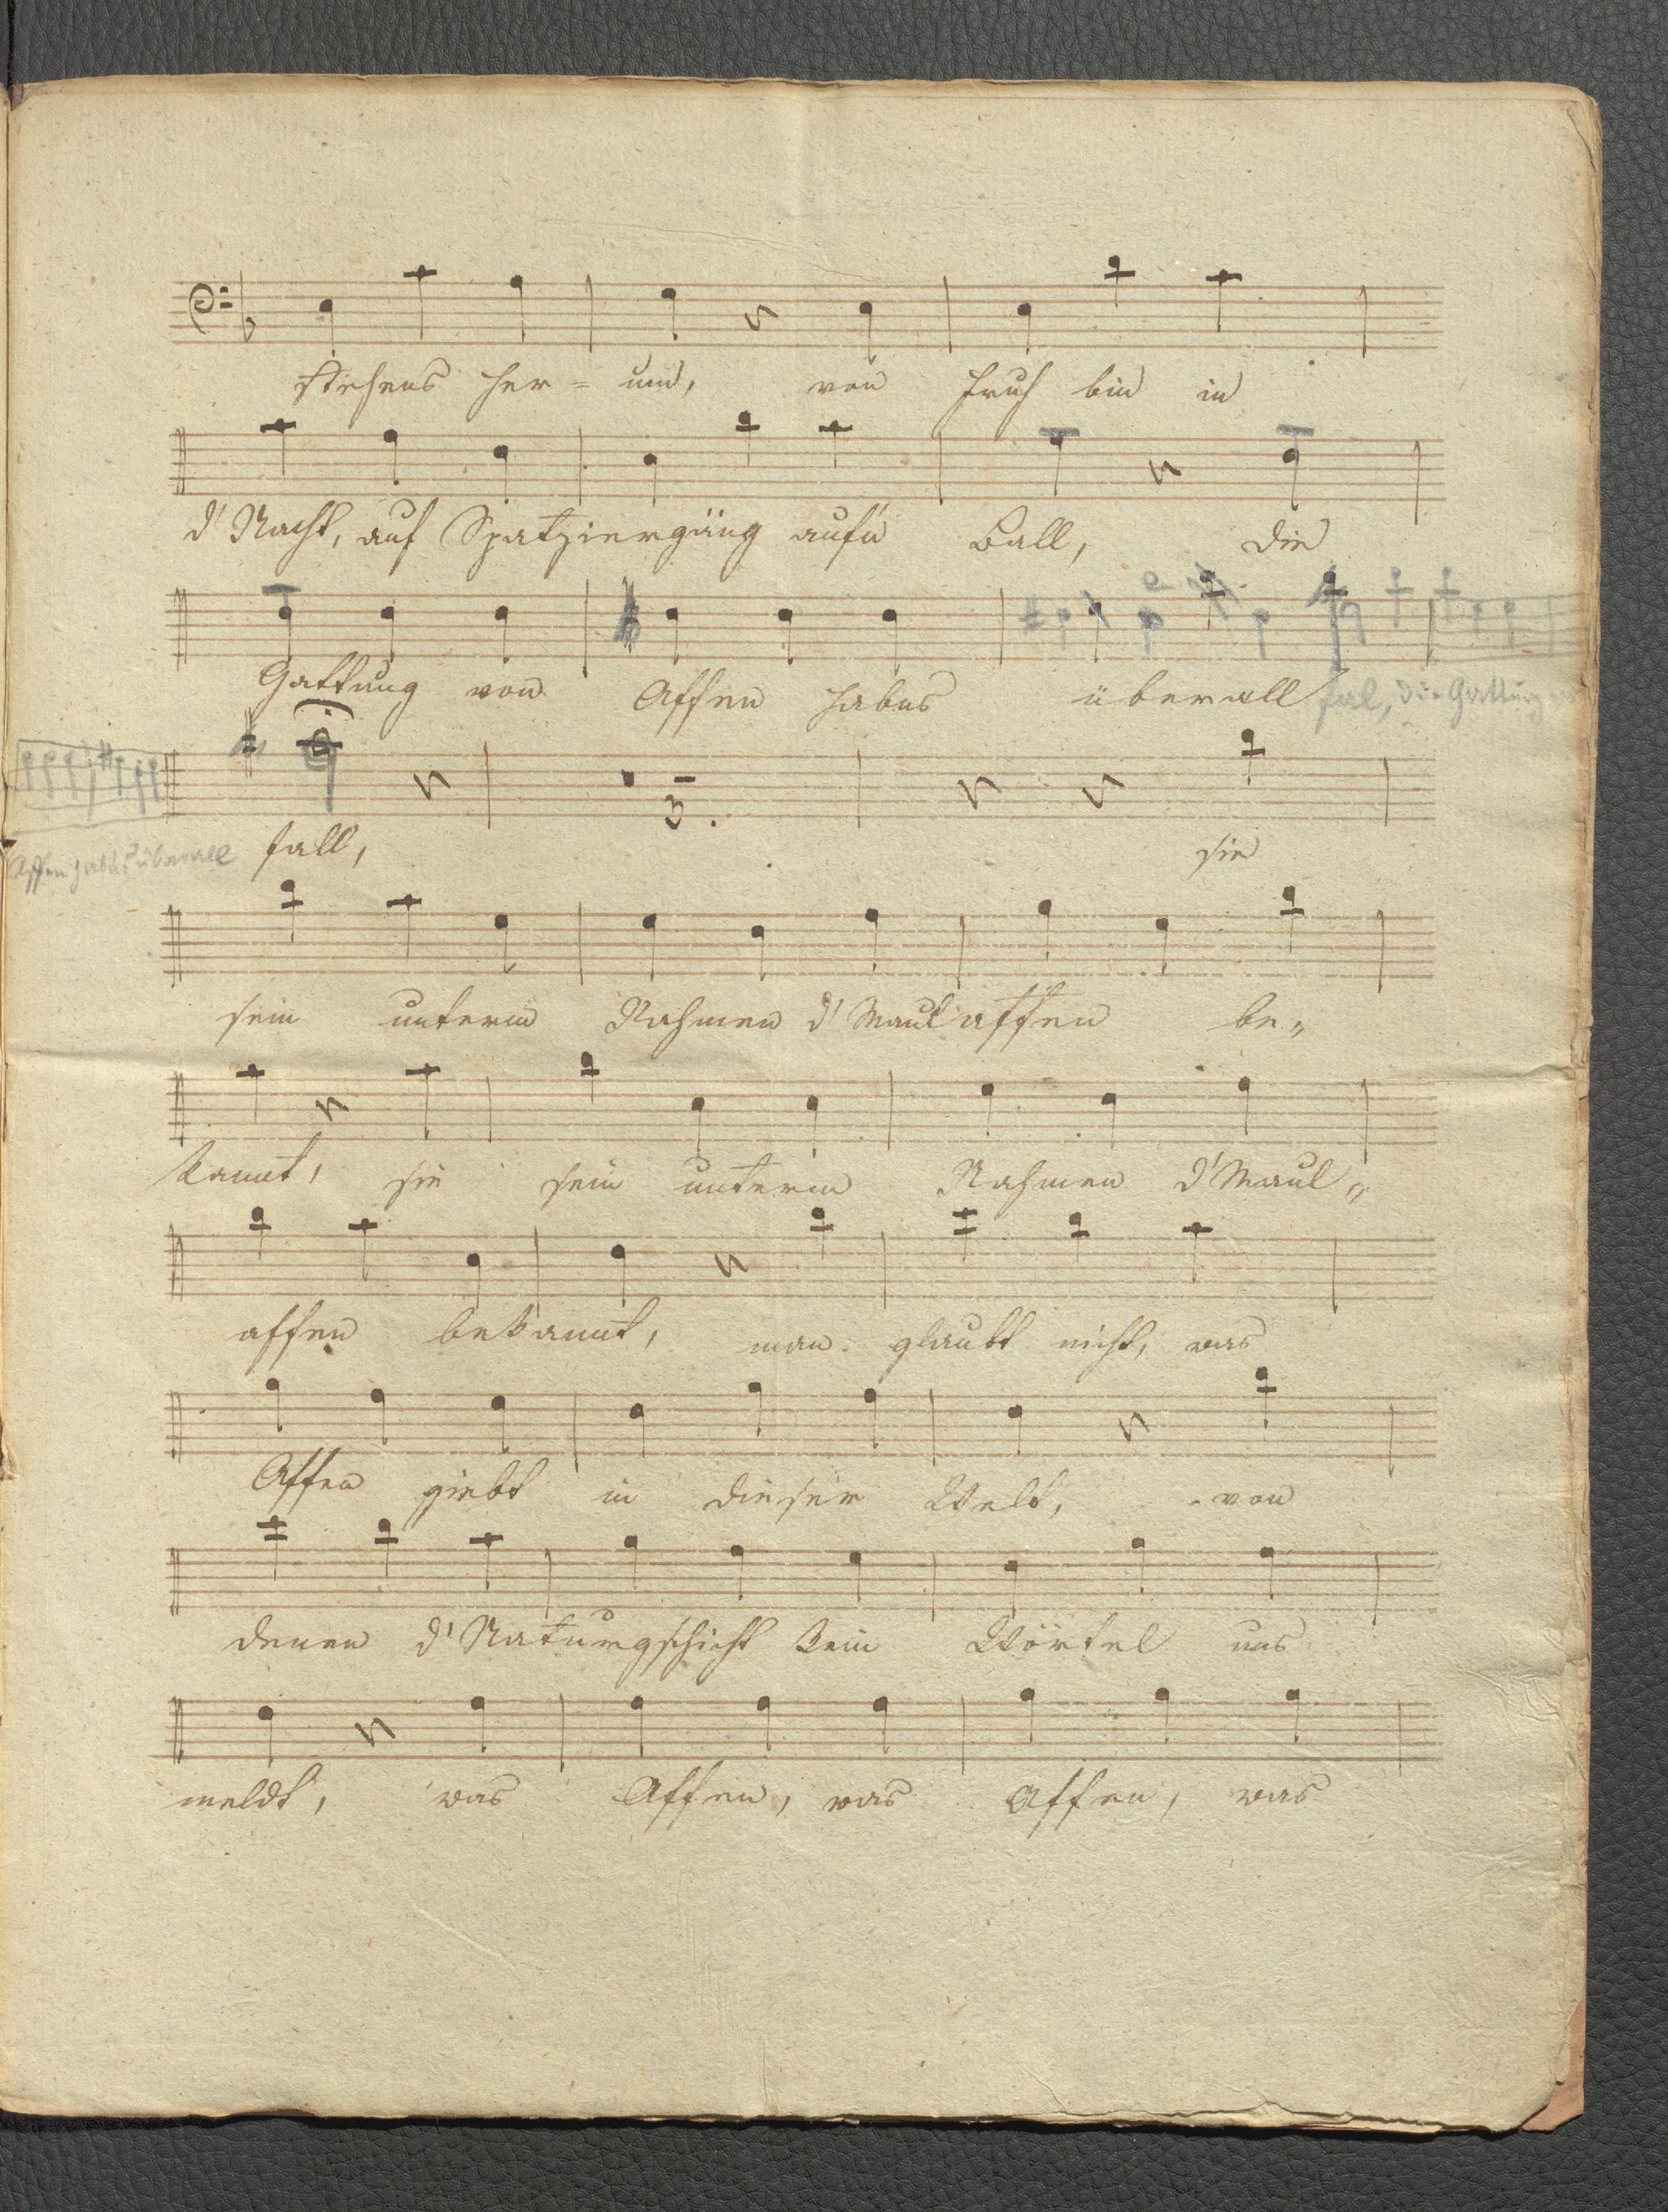 stehens her = um, von fruh bin in
d' Nacht, auf Spatziergäng aufn Ball, die
Gattung von Affen habns überall fal, die Gattung
Affen habns überall fall, 3. sie
sein unterm Nahmen d' Maulaffen be„
kannt, sie sein unterm Nahmen d' Maul„
affen bekannt, man glaubt nicht, was
Affen giebt in dieser Welt, von
denen d' Naturgschicht kein Wörtel uns
meldt, was Affen, was Affen, was